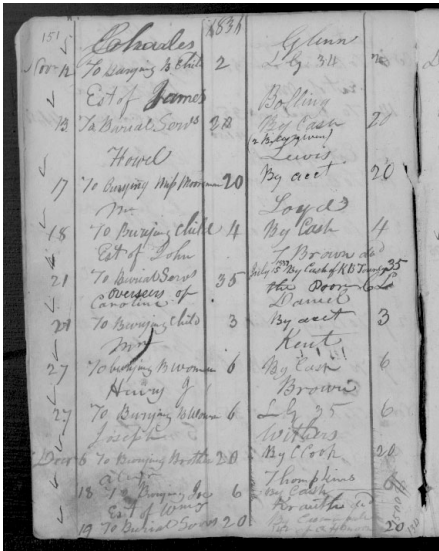 151 1836
Charles Glenn
Nov 12 To Burying B Child 2 L G 34 2
Est of James Bolling
13 To Burial Servs 20 By Cash 20
Howel Lewis
17 To Burying Woman 20 By acct 20
Loyd
18 To Burying Child 4 By Cash 4
Est of John Brown
21 To Burial Servs 35 By Cash of 35
Overseers of the Poor
Caroline Daniel
21 To Burying Child 3 By acct 3
Kent
27 To burying B woman 6 By Cash 6
Henry J Brown
27 To Burying B Woman 6 L G 35 6
Joseph Withers
Decr 6 To Burying 20 By C Book 20
Thompkins
18 To Burying 6 By Cash
Est of Wms
19 To Burial Servs 20 20